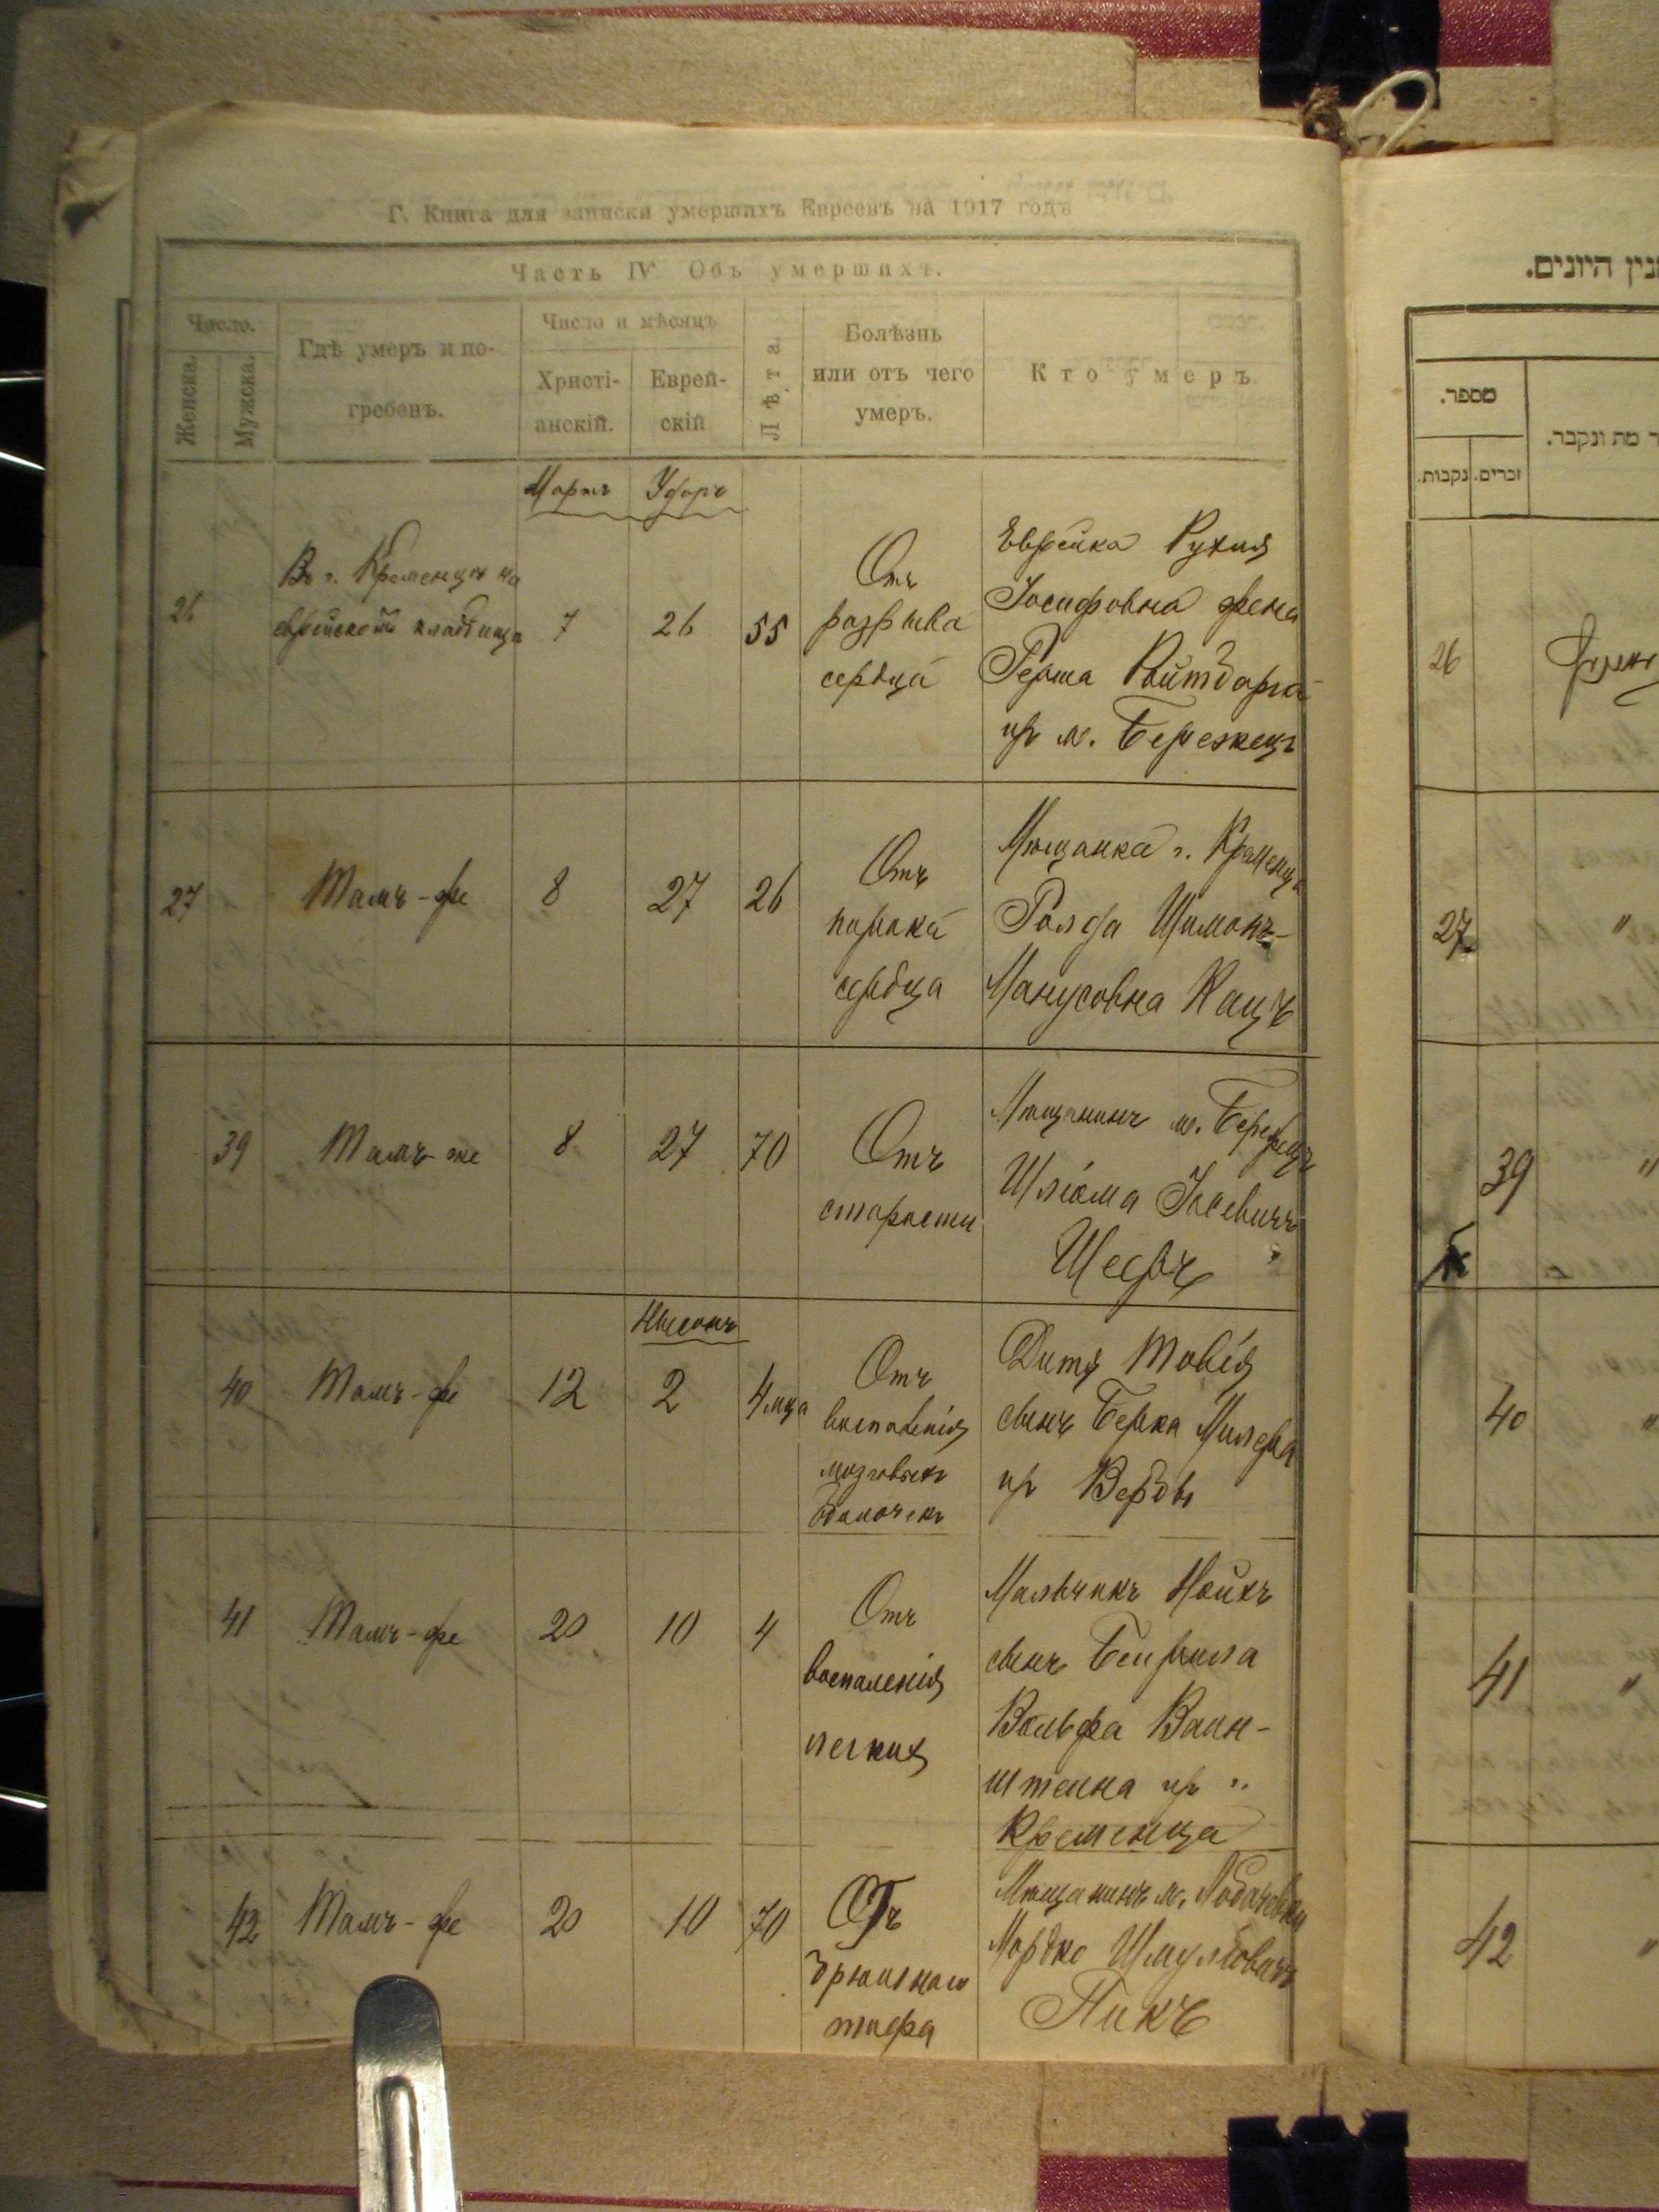 Г. Книга для записки умершихъ Евреевъ на 1917 годъ
Часть IV. Объ умершихъ.
Число.
Женска.
Мужска.
Гдѣ умеръ и по-
гребенъ.
Число и мѣсяцъ
Христі-
анскій.
Еврей-
скій
Лѣта.
Болѣзнь
или отъ чего
умеръ.
Кто умеръ.
Мартъ
26
Въ г. Кременцѣ на
еврейскомъ кладбище
7
26
55
Отъ
разрыва
сердца
Еврейка Рухля
Іосифовна жена
Герша Ройтборга
изъ м. Бережецъ
27
Тамъ-же
8
27
26
Отъ
порока
сердца
Мѣщанка г. Кременца
Шимонъ-
Манусовна Кацъ
39
Тамъ-же
8
27
70
Отъ
старости
Мѣщанинъ м. Бережецъ
Шлёма
Нысонъ
40
Тамъ-же
12
2
4 мца
Отъ
воспаленія
мозговыхъ
Дитя Товія
сынъ Берка Милера
изъ Вербы
41
Тамъ-же
20
10
4
Отъ
воспаленія
легкихъ
Мальчикъ
сынъ
Вольфа Ваин-
штеина изъ г.
Кременца
42
Тамъ-же
20
10
70
Отъ
брюшного
тифа
Мѣщанинъ м.
Мордко Шмулёвичъ
Пикъ
נין היונים.
מספר.
נקבות.
זכרים.
ר מת ונקבר.
26
27
"
39
"
40
"
41
"
42
"